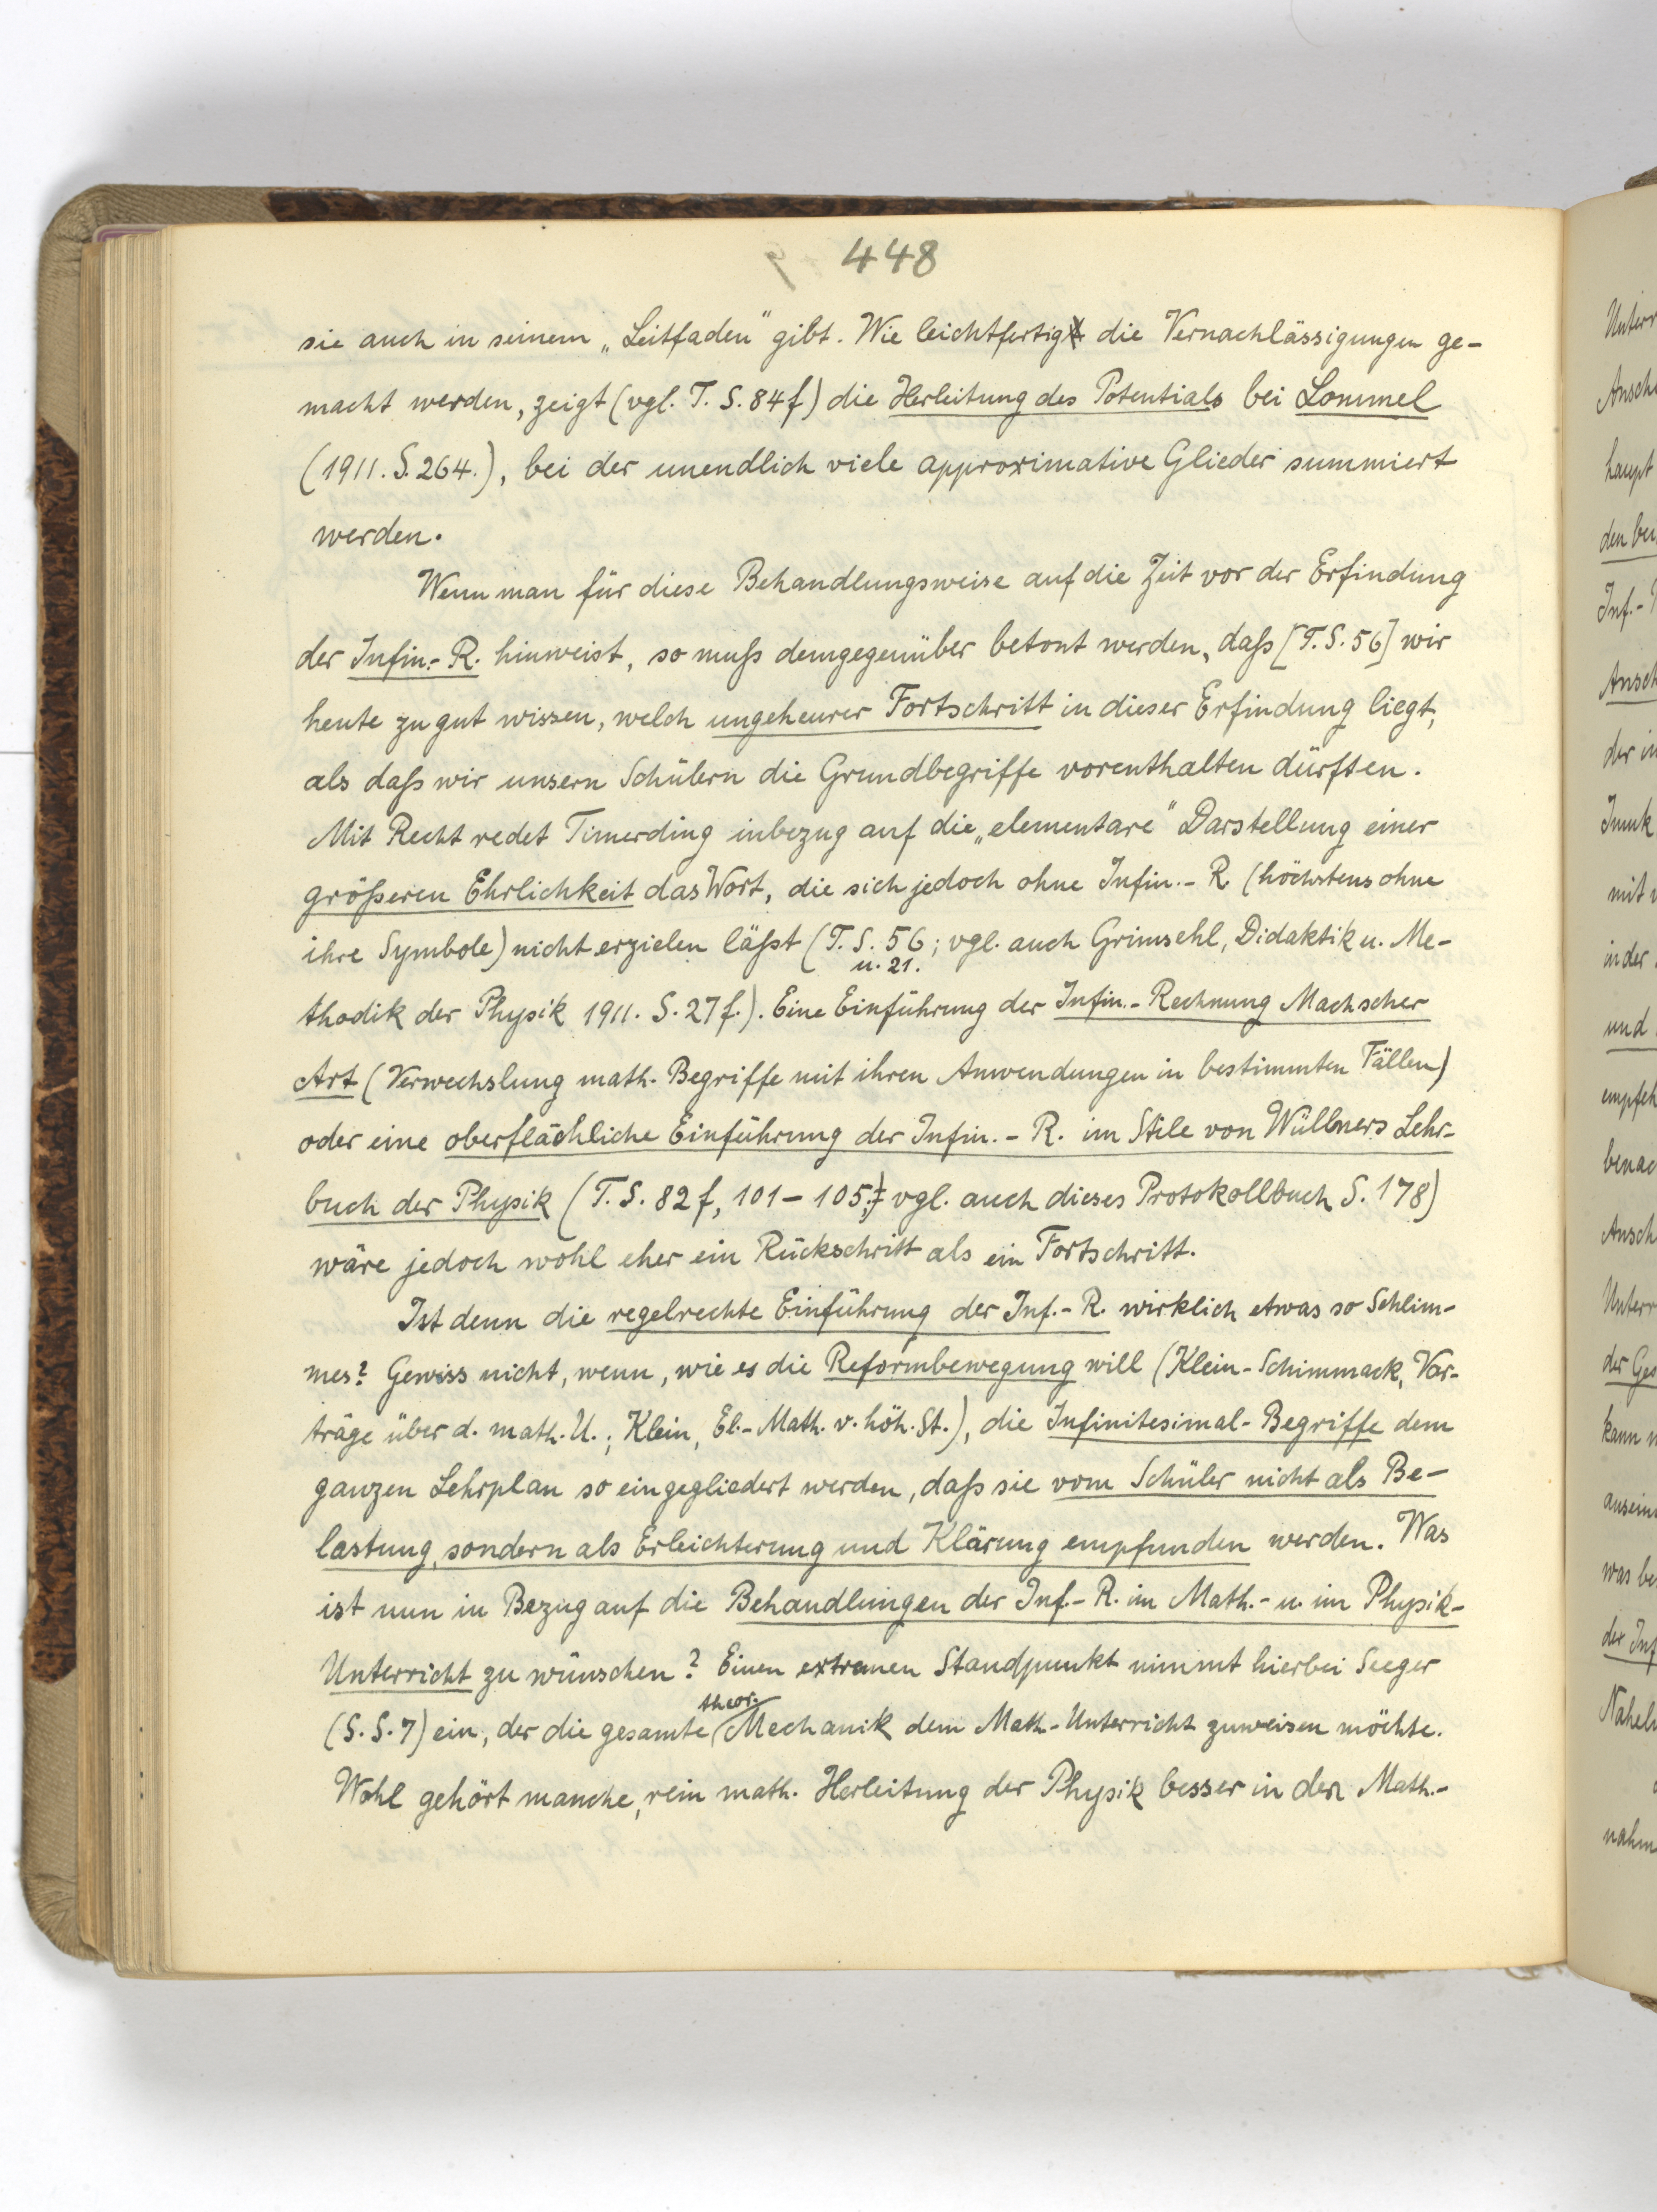 448
sie auch in seinem „Leitfaden" gibt. Wie leichtfertig die Vernachlässigungen ge-
macht werden, zeigt (vgl. T. S. 84f) die Herleitung des Potentials bei Lommel
(1911. S. 264.), bei der unendlich viele approximative Glieder summiert
werden.
Wenn man für diese Behandlungsweise auf die Zeit vor der Erfindung
der Infin.-R. hinweist, so muß demgegenüber betont werden, daß [T. S. 56] wir
heute zu gut wissen, welch ungeheurer Fortschritt in dieser Erfindung liegt,
als daß wir unsern Schülern die Grundbegriffe vorenthalten dürften.
Mit Recht redet Timerding inbezug auf die „elementare" Darstellung einer
größeren Ehrlichkeit das Wort, die sich jedoch ohne Infin.-R. (höchstens ohne
ihre Symbole) nicht erzielen läßt (T. S. 56; vgl. auch Grimsehl, Didaktik u. Me-
u. 21.
thodik der Physik 1911. S. 27f.). Eine Einführung der Infin.-Rechnung Machscher
Art (Verwechslung math. Begriffe mit ihren Anwendungen in bestimmten Fällen)
oder eine oberflächliche Einführung der Infin.-R. im Stile von Wüllners Lehr-
buch der Physik (T. S. 82f, 101-105; vgl. auch dieses Protokollbuch S. 178)
wäre jedoch wohl eher ein Rückschritt als ein Fortschritt.
Ist denn die regelrechte Einführung der Inf.-R. wirklich etwas so Schlim-
mes? Gewiss nicht, wenn, wie es die Reformbewegung will (Klein-Schimmack, Vor-
träge über d. math. U.; Klein, El.-Math. v. höh. St.), die Infinitesimal-Begriffe dem
ganzen Lehrplan so eingegliedert werden, daß sie vom Schüler nicht als Be-
lastung, sondern als Erleichterung und Klärung empfunden werden. Was
ist nun in Bezug auf die Behandlungen der Inf.-R. im Math.- u. im Physik-
Unterricht zu wünschen? Einen extremen Standpunkt nimmt hierbei Seeger
theor.
(S. S. 7) ein, der die gesamte Mechanik dem Math-Unterricht zuweisen möchte.
Wohl gehört manche, rein math. Herleitung der Physik besser in den Math.-